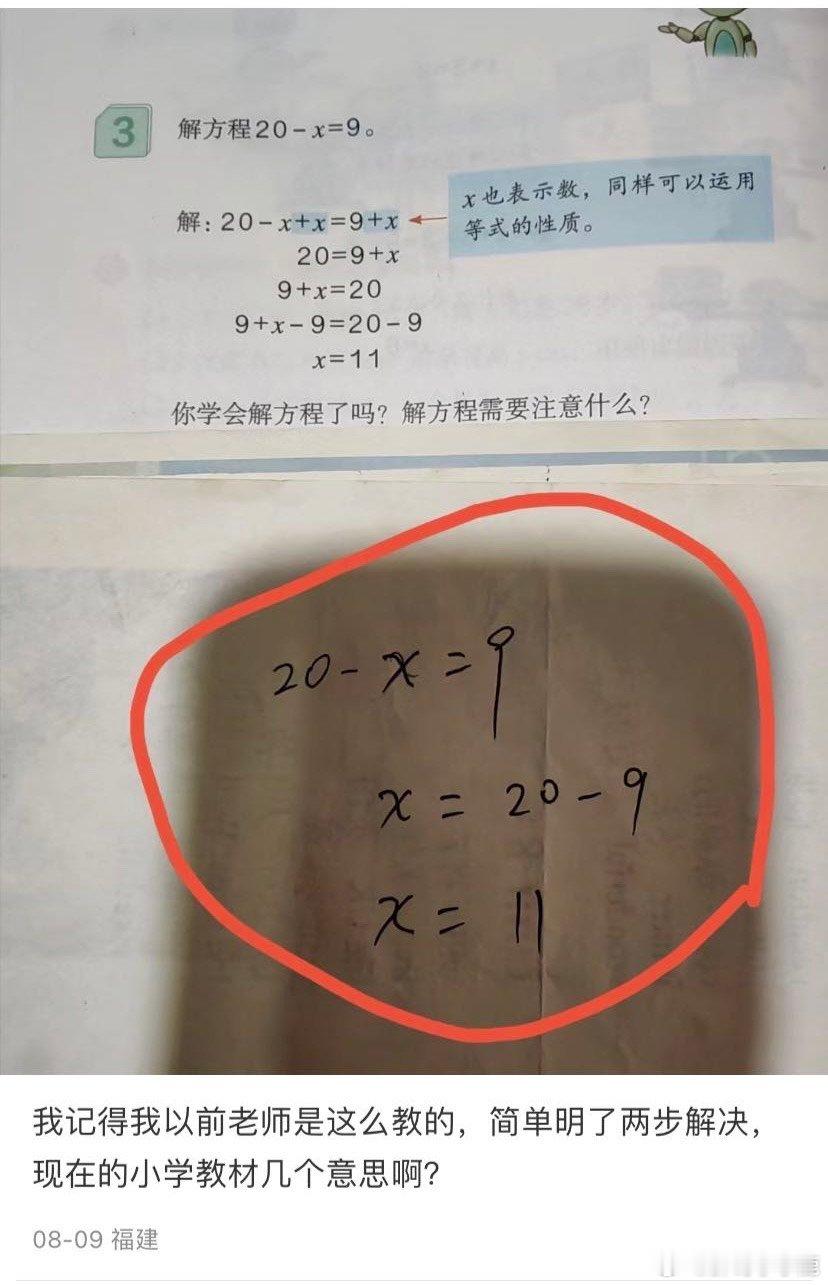 3 解方程20-x=9。
x也表示数，同样可以运用
等式的性质。
解：20-x+x=9+x
20=9+x
9+x=20
9+x-9=20-9
x=11
你学会解方程了吗？解方程需要注意什么？
20-x=9
x=20-9
x=11
我记得我以前老师是这么教的，简单明了两步解决，
现在的小学教材几个意思啊？
08-09 福建